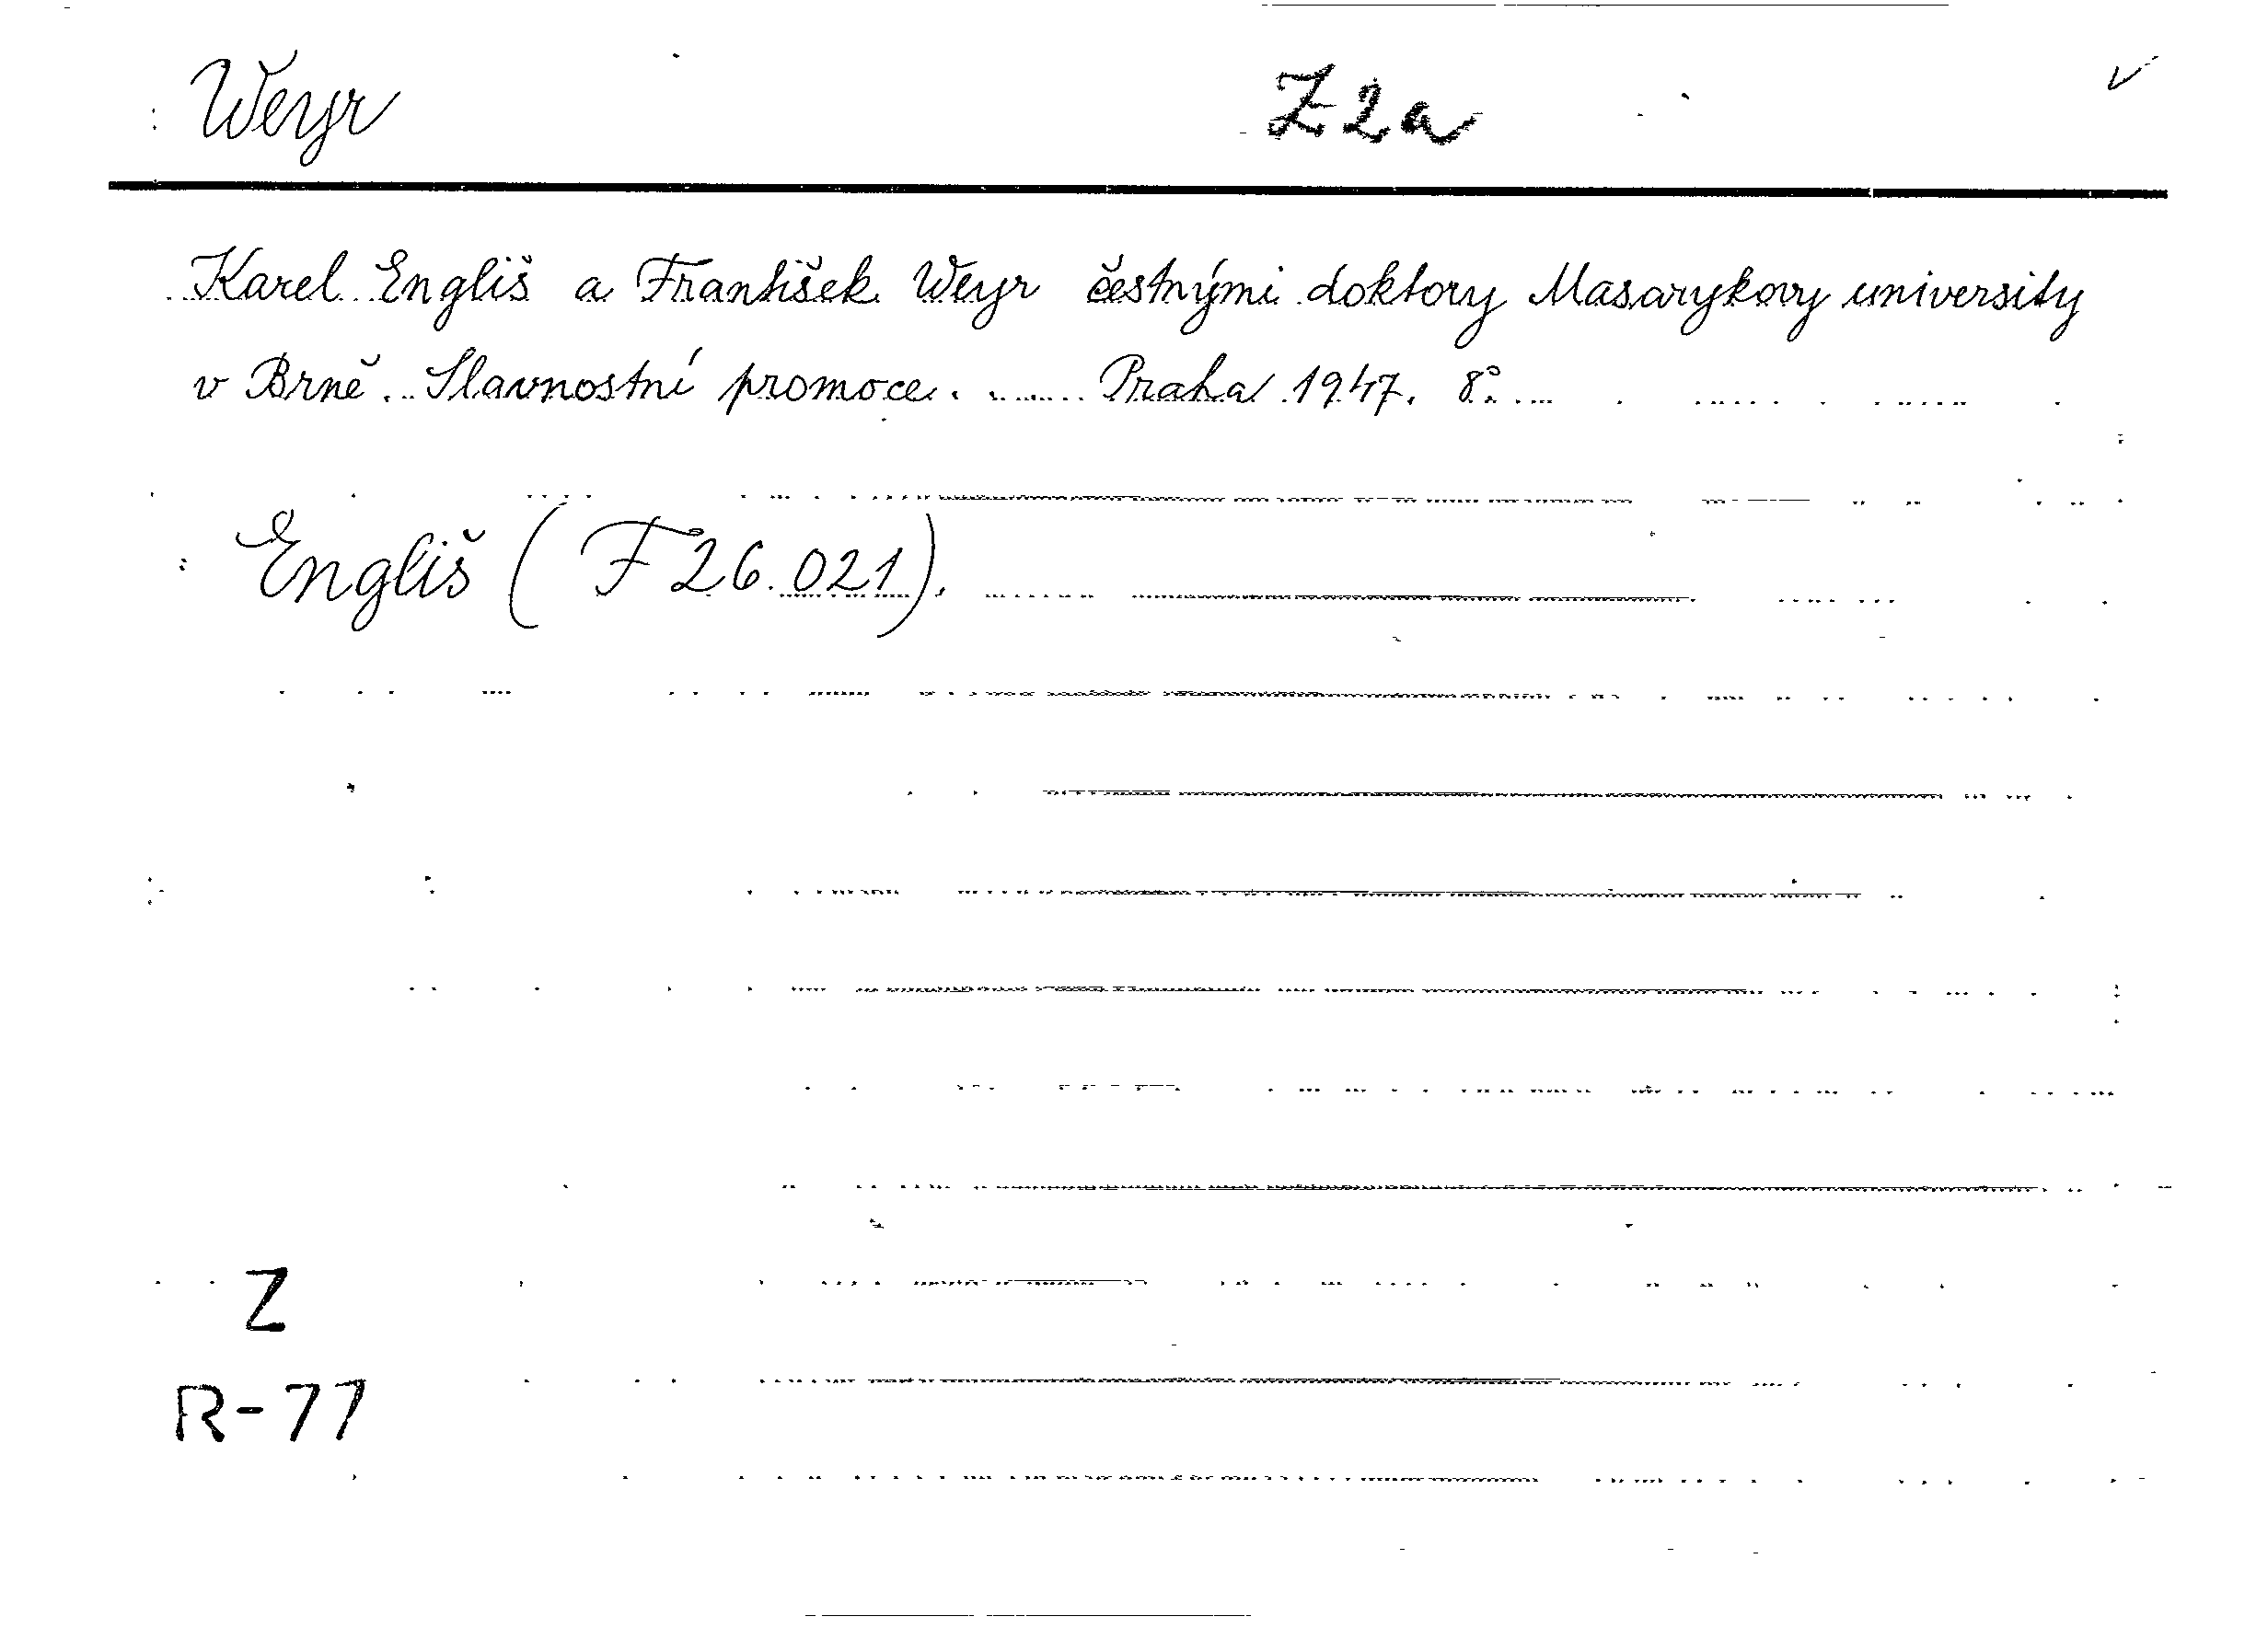 Weyr Z2a ✓
Karel Engliš a František Weyr čestnými doktory Masarykovy university
v Brně. Slavnostní promoce. Praha 1947. 8°.
Engliš (F 26.021).
Z
R-77